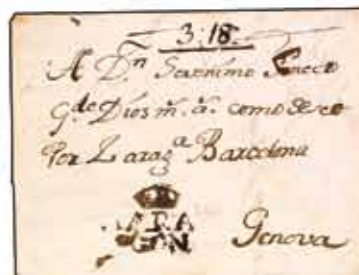 3:18.
A Dⁿ Geronimo
G.ᵈᵉ Dios m.ˢ a.ˢ como deseo
Por Zarag.ᵃ Barcelona
ARA
GON
Genova